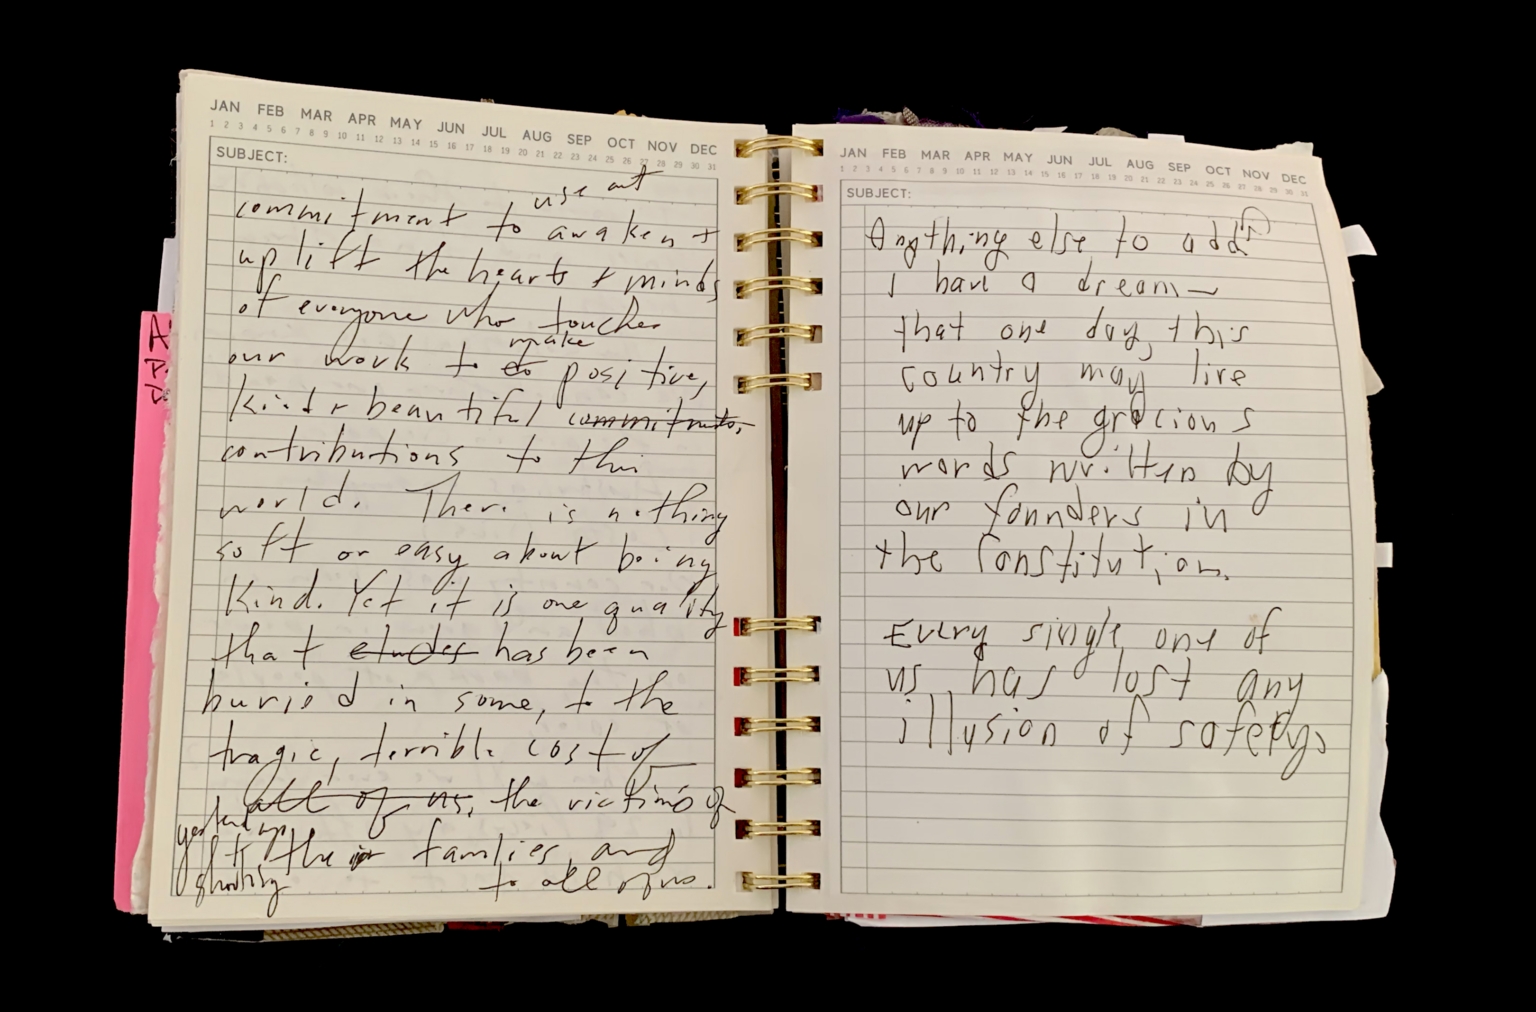 JAN FEB MAR APR MAY JUN JUL AUG SEP OCT NOV DEC
1 2 3 4 5 6 7 8 9 10 11 12 13 14 15 16 17 18 19 20 21 22 23 24 25 26 27 28 29 30 31
SUBJECT:
use art
commitment to awaken +
uplift the hearts + minds
of everyone who touches
make
our work to do positive,
kind + beautiful commitments,
contributions to this
world. There is nothing
soft or easy about being
kind. Yet it is one quality
that eludes has been
buried in some, to the
tragic, terrible cost of
all of us, the victims of
yesterday
the families, and
shooting
to all of us.
JAN FEB MAR APR MAY JUN JUL AUG SEP OCT NOV DEC
1 2 3 4 5 6 7 8 9 10 11 12 13 14 15 16 17 18 19 20 21 22 23 24 25 26 27 28 29 30 31
SUBJECT:
Anything else to add?
I have a dream—
that one day, this
country may live
up to the gracious
words written by
our founders in
the Constitution.
Every single one of
us has lost any
illusion of safety.